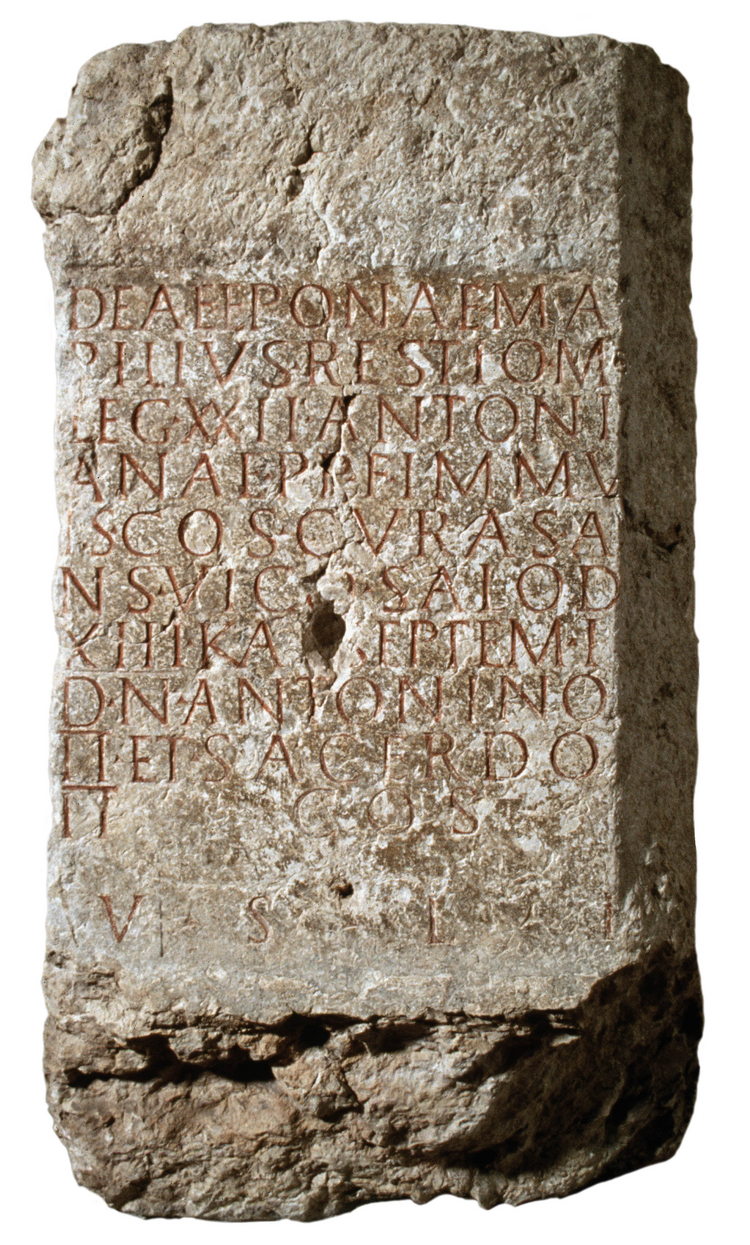 DEAE EPONAE M A
PILIVS RESTIO M
LEG XXII ANTONI
ANAE P P F IMMV
IS COS CVRAS A
NS·VICO·SALOD
XIIII KA SEPTEM
D·N·ANTONINO
II·ET SACERDO
II COS
V S L